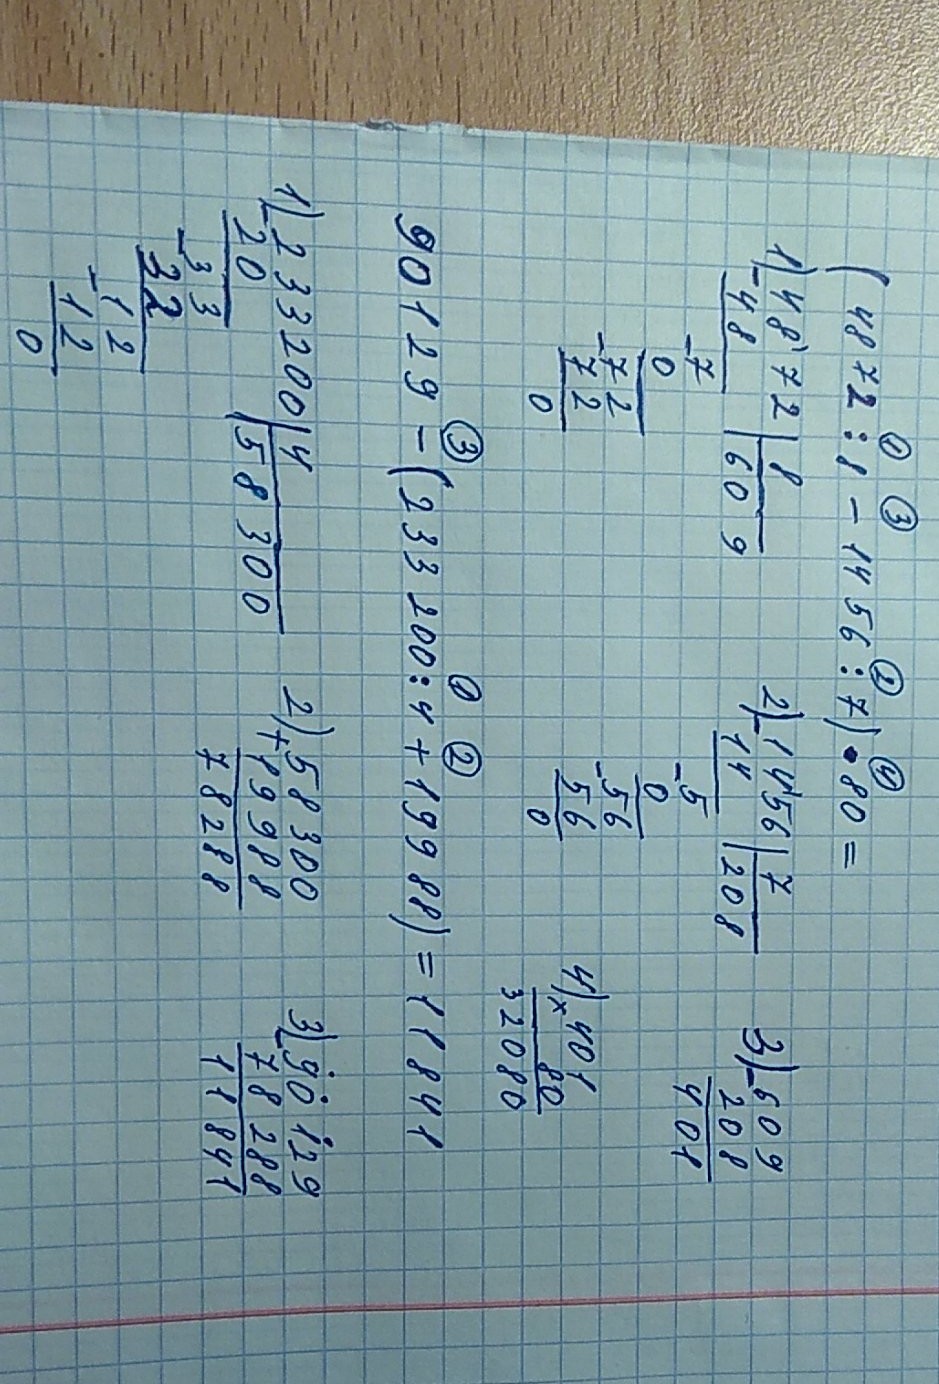 ① ③ ② ④
(4872 : 8 - 1456 : 7) • 80 =
1) 4872 | 8 2) 1456 | 7 3) 609
- 48 | 609 - 14 | 208 - 208
401
- 7 - 5
0 0 4) 401
- 72 - 56 × 80
72 56 32080
0 0
③ ① ②
90129 - (233200 : 4 + 19988) = 11841
1) 233200 | 4 2) 58300 3) 90129
- 20 | 58300 + 19988 - 78288
- 33 78288 11841
32
- 12
12
0